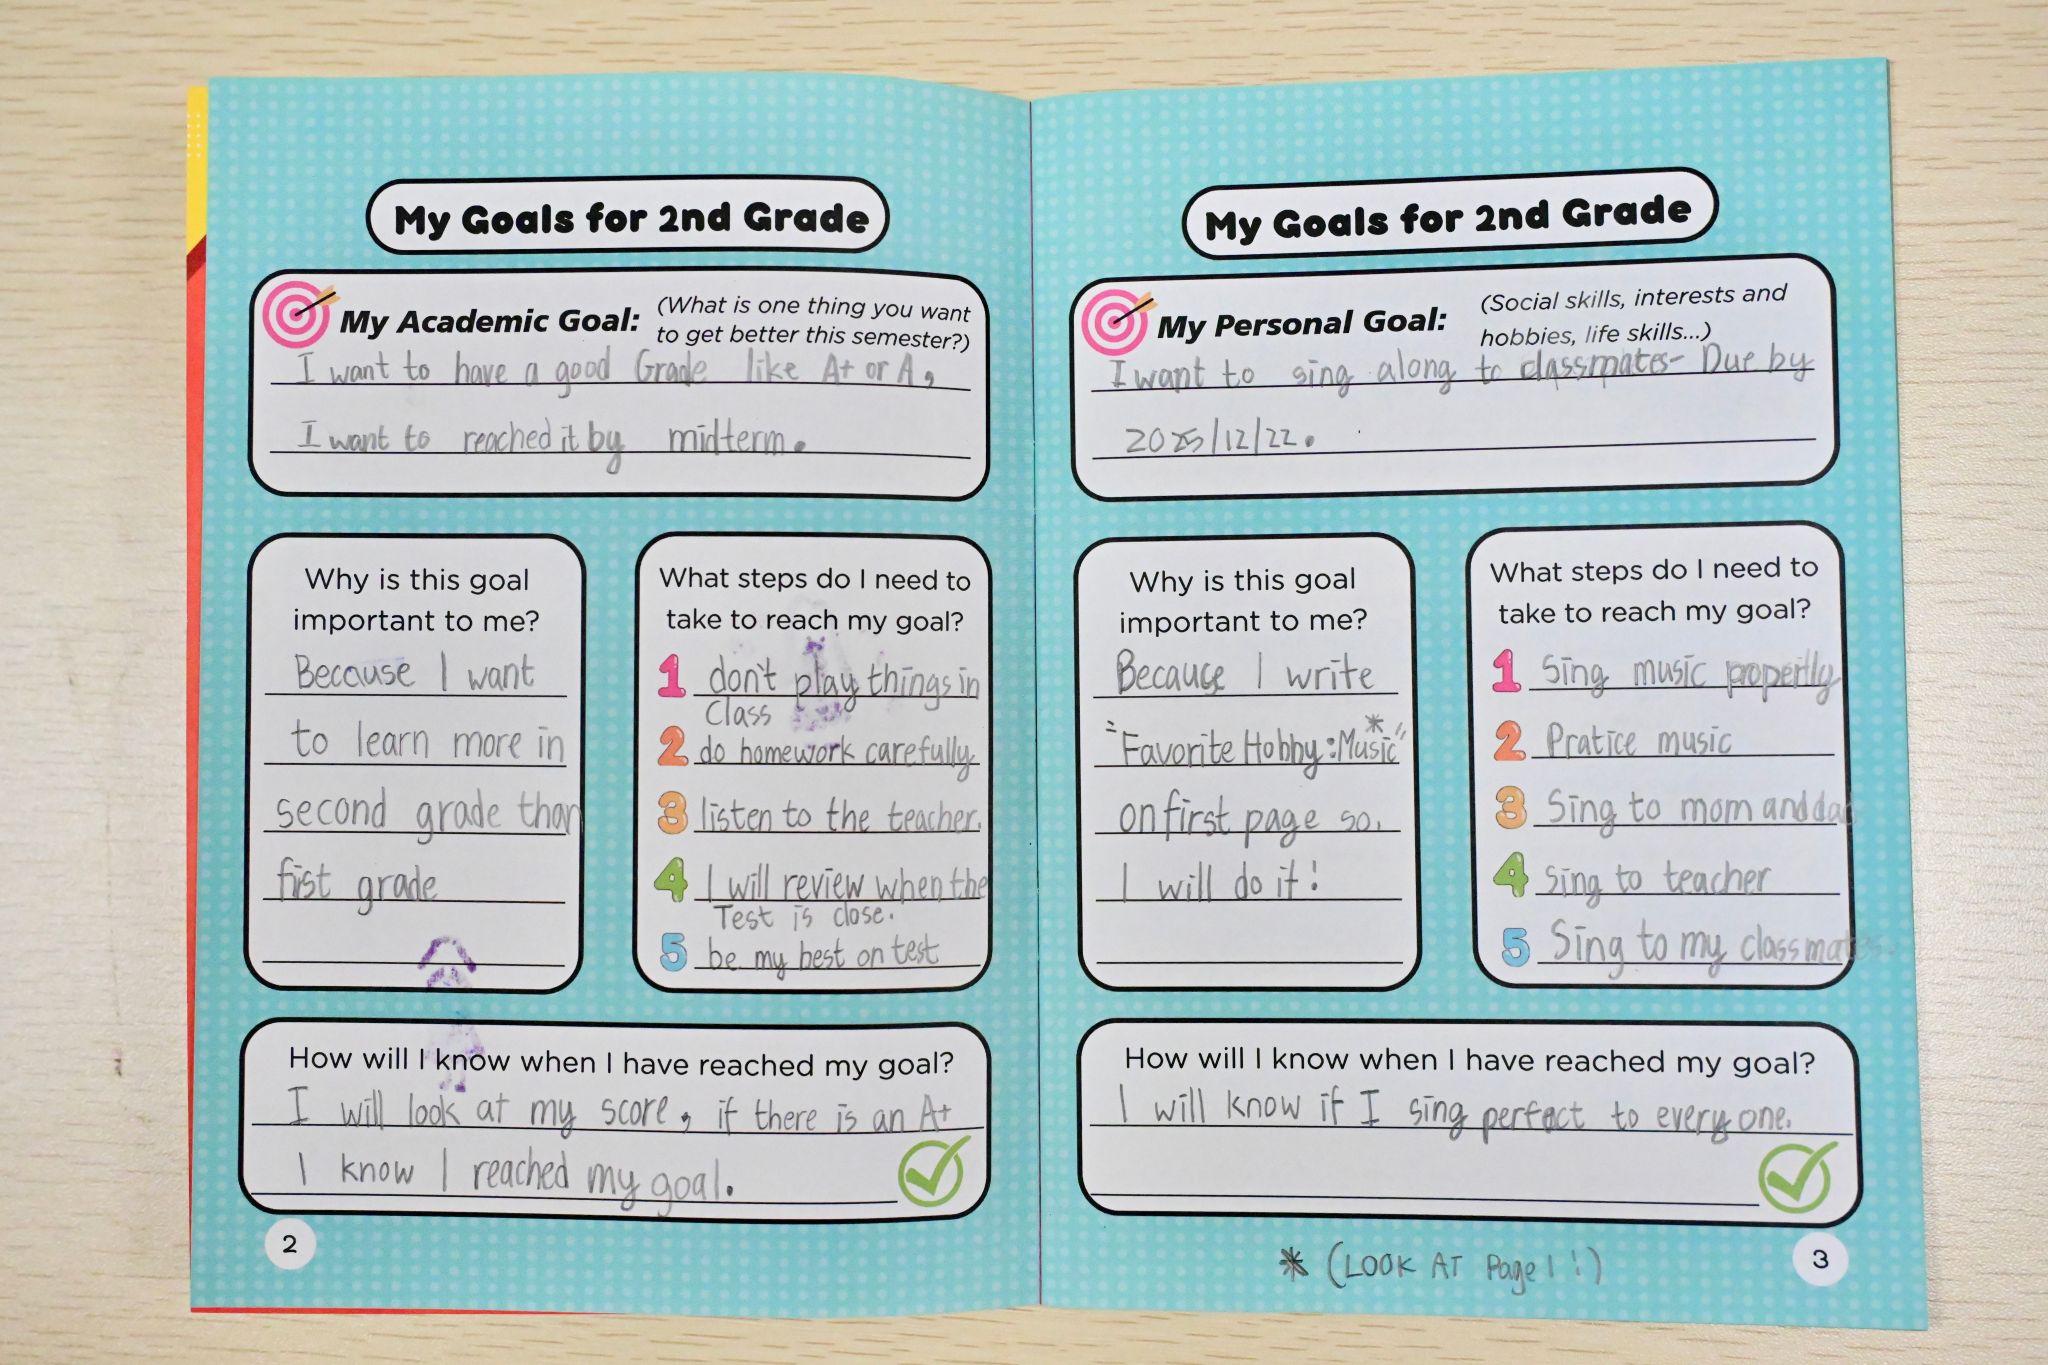 My Goals for 2nd Grade
My Academic Goal: (What is one thing you want
to get better this semester?)
I want to have a good Grade like A+ or A,
I want to reached it by midterm.
Why is this goal
important to me?
Because I want
to learn more in
second grade than
first grade
What steps do I need to
take to reach my goal?
1 don't play things in
Class
2 do homework carefully
3 listen to the teacher.
4 I will review when the
Test is close.
5 be my best on test
How will I know when I have reached my goal?
I will look at my score, if there is an A+
I know I reached my goal.
2
My Goals for 2nd Grade
My Personal Goal: (Social skills, interests and
hobbies, life skills...)
I want to sing along to classmates- Due by
2025/12/22.
Why is this goal
important to me?
Because I write
"Favorite Hobby:Music*"
on first page so.
I will do it!
What steps do I need to
take to reach my goal?
1 Sing music propertly
2 Pratice music
3 Sing to mom and dad
4 Sing to teacher
5 Sing to my classmates.
How will I know when I have reached my goal?
I will know if I sing perfect to everyone.
* (LOOK AT Page 1!)
3